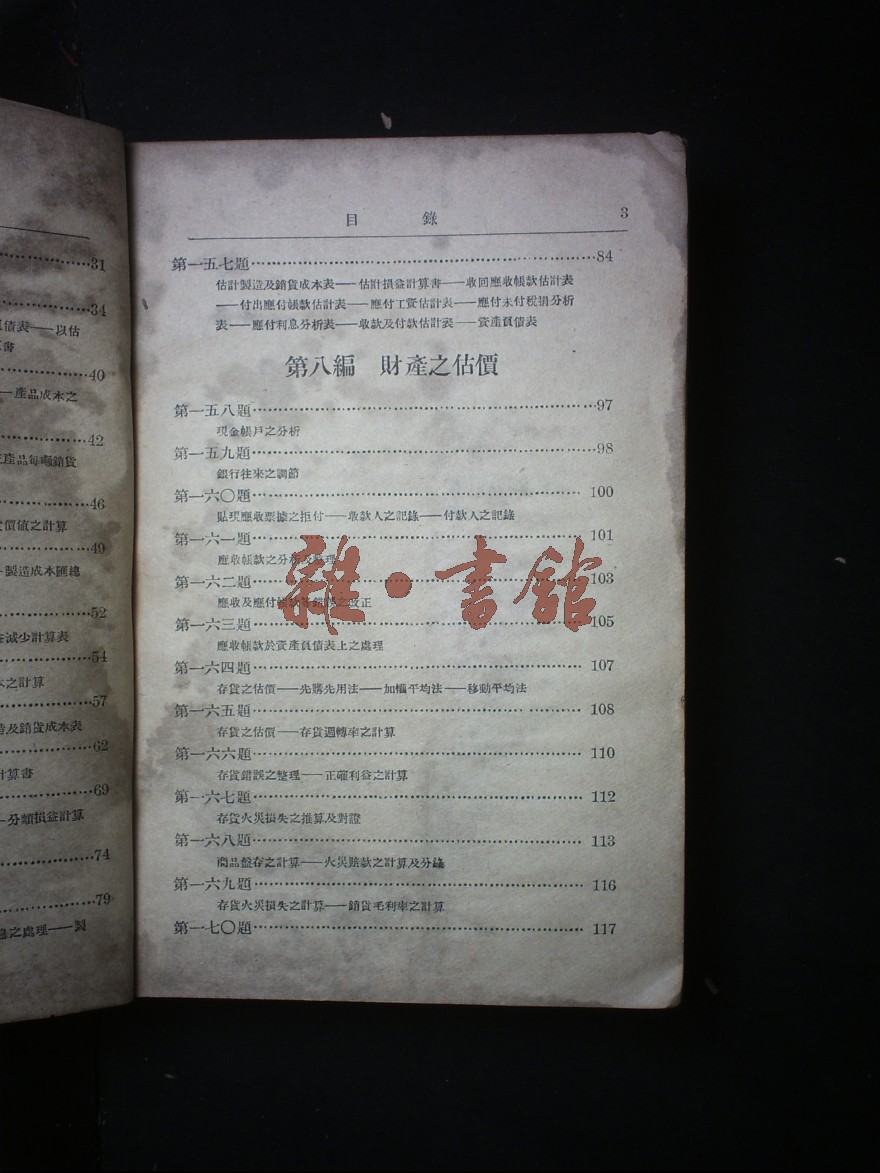 31
34
負債表——以估
算書
40
——產品成本之
42
產品每噸銷貨
46
價值之計算
49
製造成本匯總
52
減少計算表
54
本之計算
57
造及銷貨成本表
62
計算書
69
分類損益計算
74
79
之處理——製
目 錄 3
第一五七題 84
估計製造及銷貨成本表——估計損益計算書——收回應收帳款估計表
——付出應付帳款估計表——應付工資估計表——應付未付稅捐分析
表——應付利息分析表——收款及付款估計表——資產負債表
第八編 財產之估價
第一五八題 97
現金帳戶之分析
第一五九題 98
銀行往來之調節
第一六〇題 100
貼現應收票據之拒付——收款人之記錄——付款人之記錄
第一六一題 101
應收帳款之分析及整理
第一六二題 103
應收及應付帳款等錯誤之改正
第一六三題 105
應收帳款於資產負債表上之處理
第一六四題 107
存貨之估價——先購先用法——加權平均法——移動平均法
第一六五題 108
存貨之估價——存貨週轉率之計算
第一六六題 110
存貨錯誤之整理——正確利益之計算
第一六七題 112
存貨火災損失之推算及對證
第一六八題 113
商品盤存之計算——火災賠款之計算及分錄
第一六九題 116
存貨火災損失之計算——銷貨毛利率之計算
第一七〇題 117
雜·書館